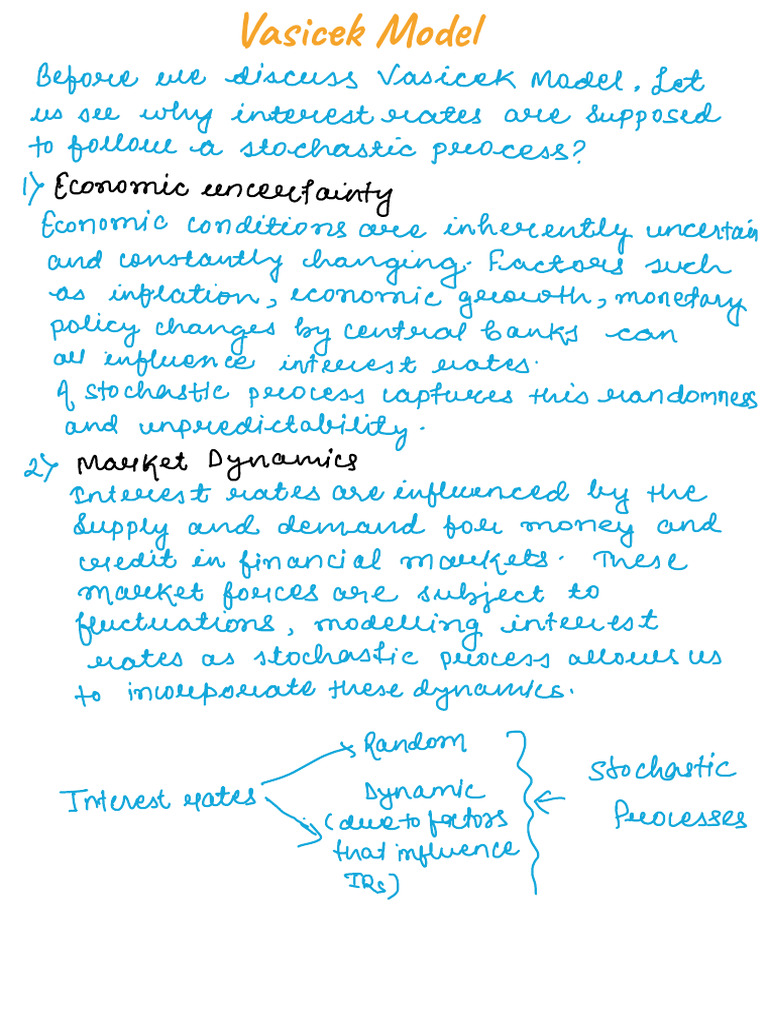 Vasicek Model
Before we discuss Vasicek Model. Let
us see why interest rates are supposed
to follow a stochastic process?
1) Economic uncertainty
Economic conditions are inherently uncertain
and constantly changing. Factors such
as inflation, economic growth, monetary
policy changes by central banks can
all influence interest rates.
A stochastic process captures this randomness
and unpredictability.
2) Market Dynamics
Interest rates are influenced by the
supply and demand for money and
credit in financial markets. These
market forces are subject to
fluctuations, modelling interest
rates as stochastic process allows us
to incorporate these dynamics.
Interest rates
Random
Dynamic
(due to factors
that influence
IRs)
Stochastic
Processes